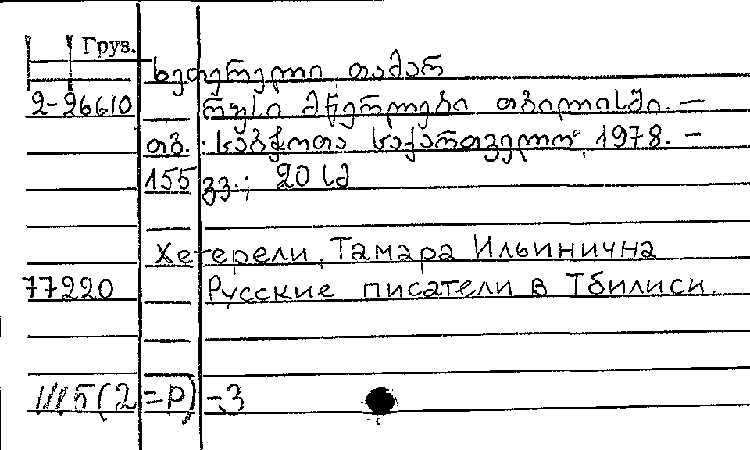 Груз.
ხეთერელი თამარ
2-26610 რუსი მწერლები თბილისში. —
თბ.: საბჭოთა საქართველო, 1978. —
155 გვ.; 20 სმ
Хетерели, Тамара Ильинична
77220 Русские писатели в Тбилиси.
Ш5(2=Р)-3